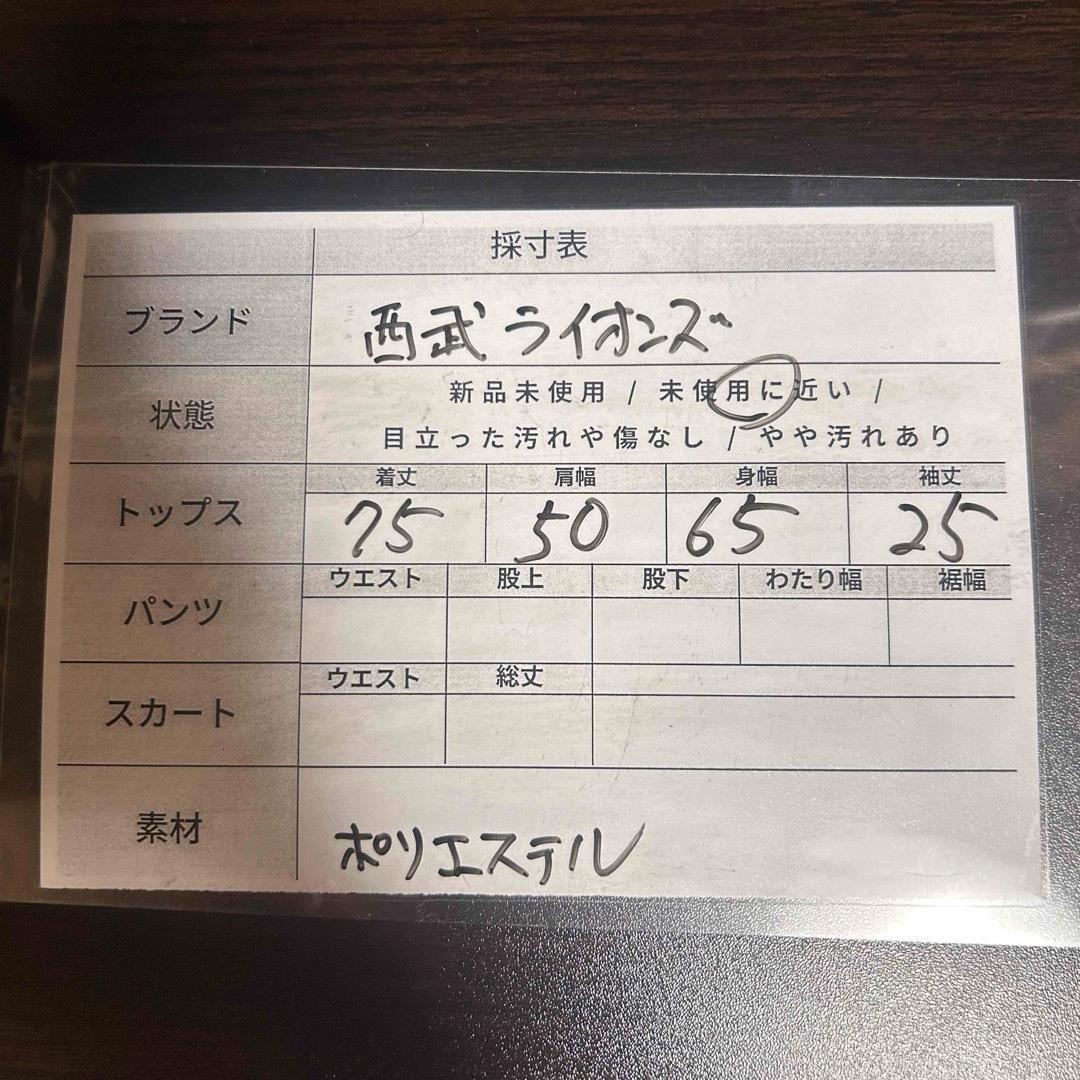 採寸表
ブランド 西武ライオンズ
状態 新品未使用 / 未使用に近い /
目立った汚れや傷なし / やや汚れあり
着丈 肩幅 身幅 袖丈
トップス 75 50 65 25
ウエスト 股上 股下 わたり幅 裾幅
パンツ
ウエスト 総丈
スカート
素材 ポリエステル